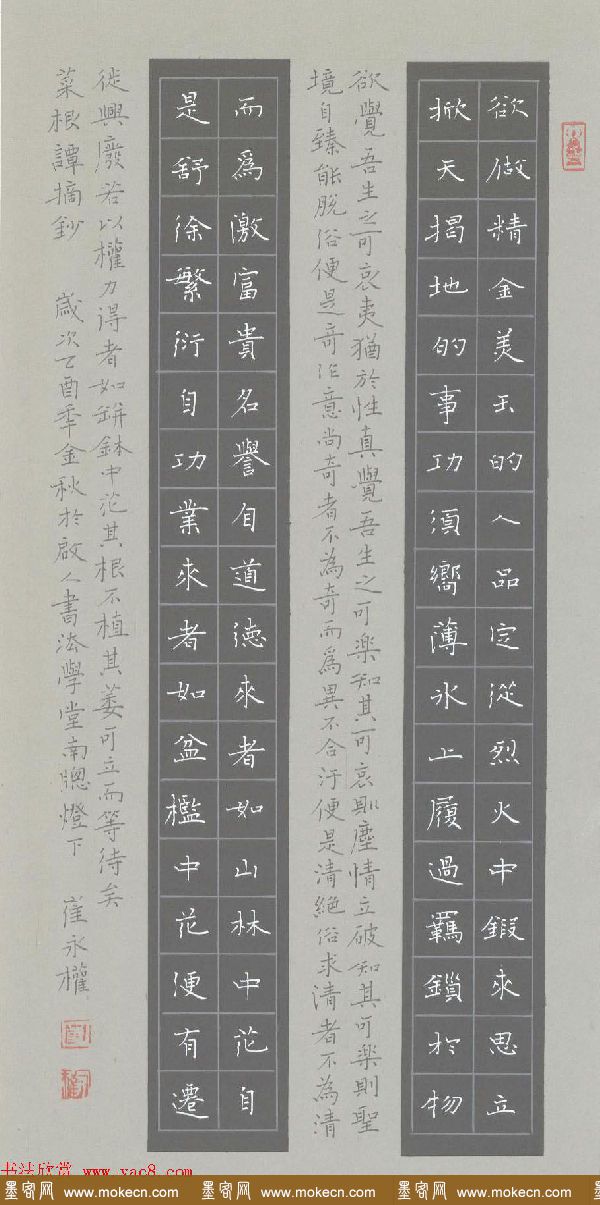 欲做精金美玉的人品定從烈火中鍛來思立
掀天揭地的事功須嚮薄氷上履過羈鎖於物
欲覺吾生之可哀夷猶於性真覺吾生之可樂知其可哀則塵情立破知其可樂則聖
境自臻能脫俗便是奇作意尚奇者不為奇而爲異不合汙便是清絕俗求清者不為清
而爲激富貴名譽自道德來者如山林中花自
是舒徐繁衍自功業來者如盆檻中花便有遷
徙興廢若以權力得者如缾鉢中花其根不植其萎可立而等待矣
菜根譚摘鈔 歲次乙酉年金秋於啟人書法學堂南牕燈下 崔永權
书法欣赏 www.yac8.com
墨客网 www.mokecn.com 墨客网 www.mokecn.com 墨客网 www.mokecn.com